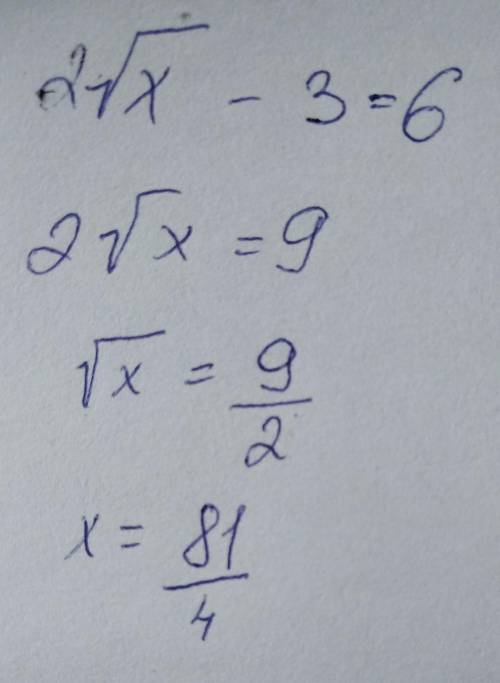 2√x - 3 = 6
2√x = 9
√x = 9/2
x = 81/4